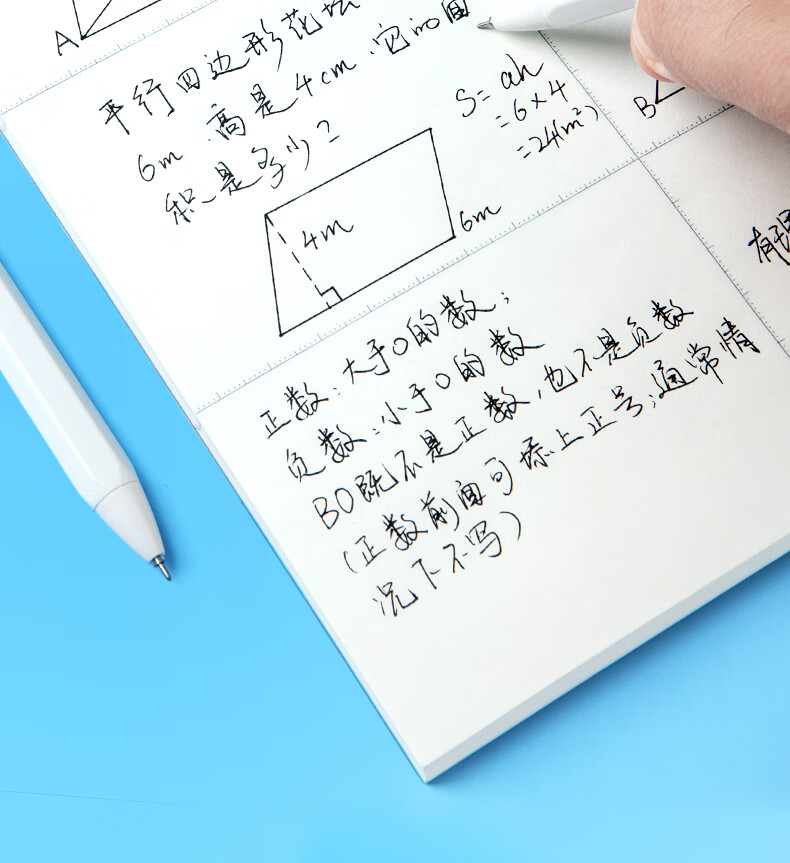 A
平行四边形花坛
6m,高是4cm,它的面
积是多少?
S=ah
=6×4
=24(m²)
4m
6m
B
正数:大于0的数;
负数:小于0的数
BO既不是正数,也不是负数
(正数前面可添上正号;通常情
况下不写)